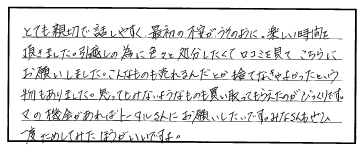 とても親切で話しやすく、最初の不安がうそのように、楽しい時間を
頂きました。引越しの為に色々と処分したくて口コミを見て こちらに
お願いしました。こんなものも売れるんだとか捨てなきゃよかったという
物もありました。思ってもいないようなものも買い取ってもらえたのがびっくりです。
又の機会があればトータルさんにお願いしたいです。みなさんもぜひ
一度ためしてみたほうがいいですよ。